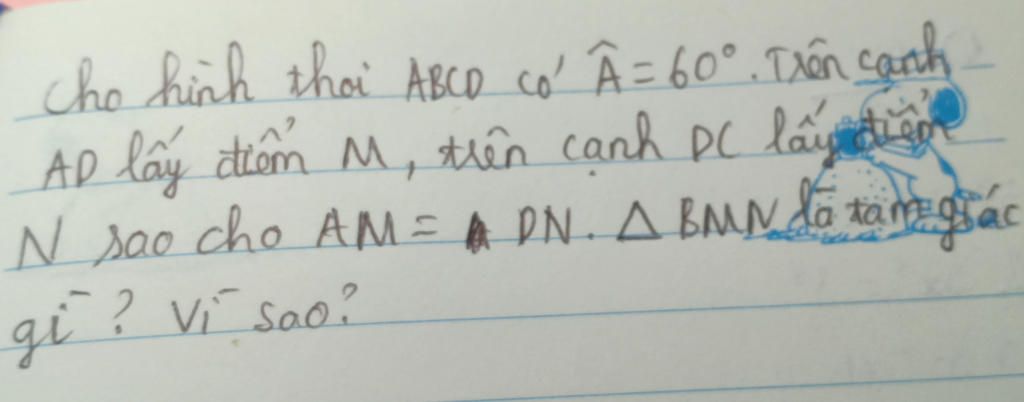 Cho hình thoi ABCD có Â = 60°. Trên cạnh
AD lấy điểm M, trên cạnh DC lấy điểm
N sao cho AM = DN. Δ BMN là tam giác
gì? Vì sao?